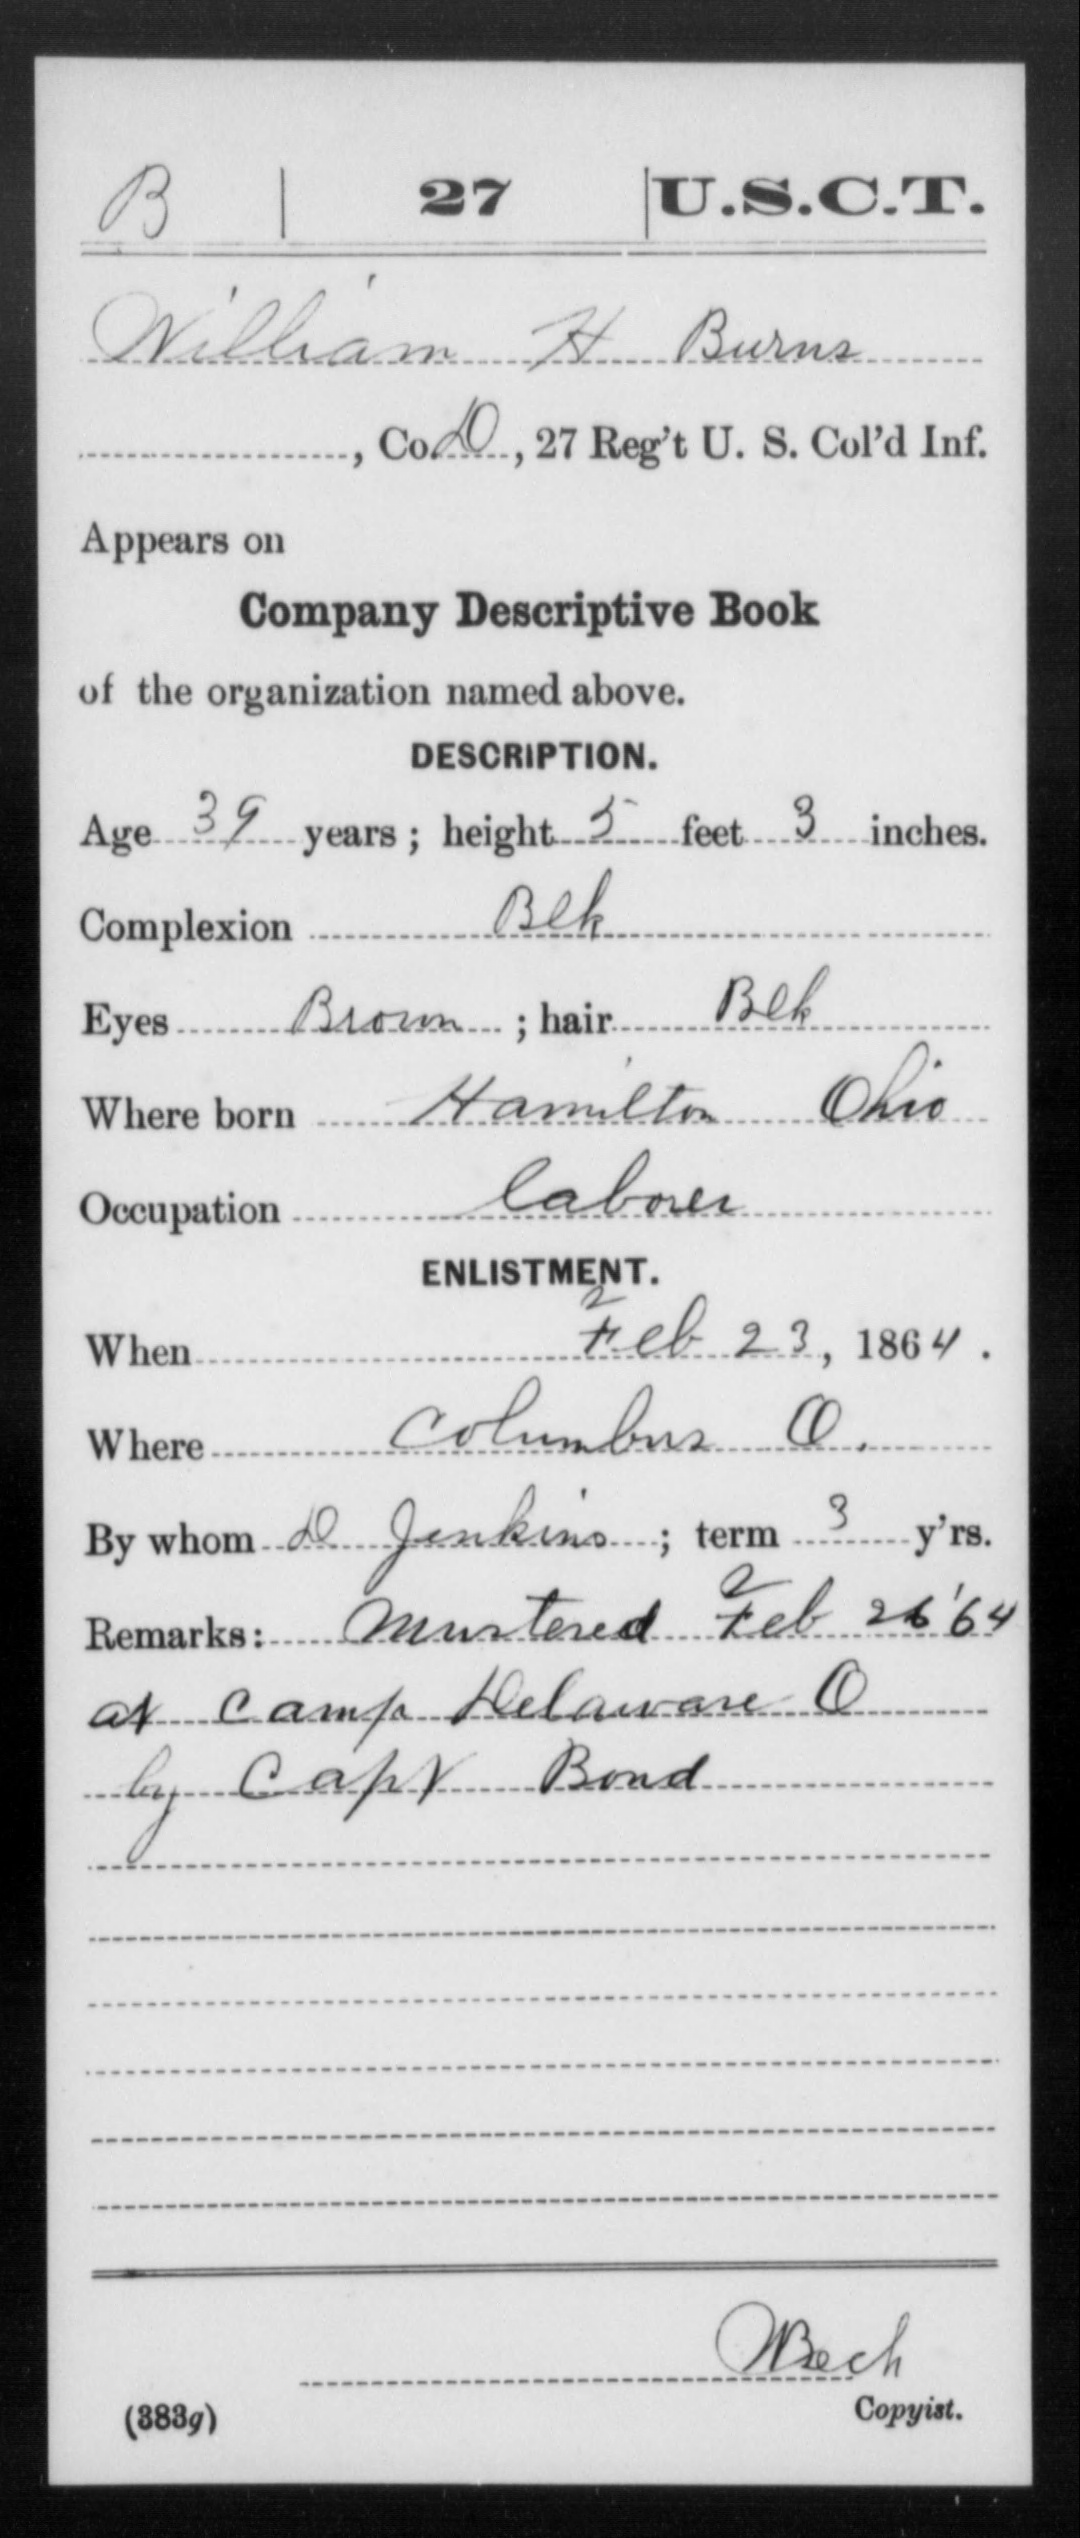 B | 27 | U.S.C.T.
William H Burns
, Co. D, 27 Reg't U. S. Col'd Inf.
Appears on
Company Descriptive Book
of the organization named above.
DESCRIPTION.
Age 39 years; height 5 feet 3 inches.
Complexion Blk
Eyes Brown; hair Blk
Where born Hamilton Ohio
Occupation laborer
ENLISTMENT.
When Feb 23, 1864.
Where Columbus O.
By whom D Jenkins; term 3 y'rs.
Remarks: Mustered Feb 26 '64
at Camp Delaware O
by Capt Bond
Copyist.
(383g)